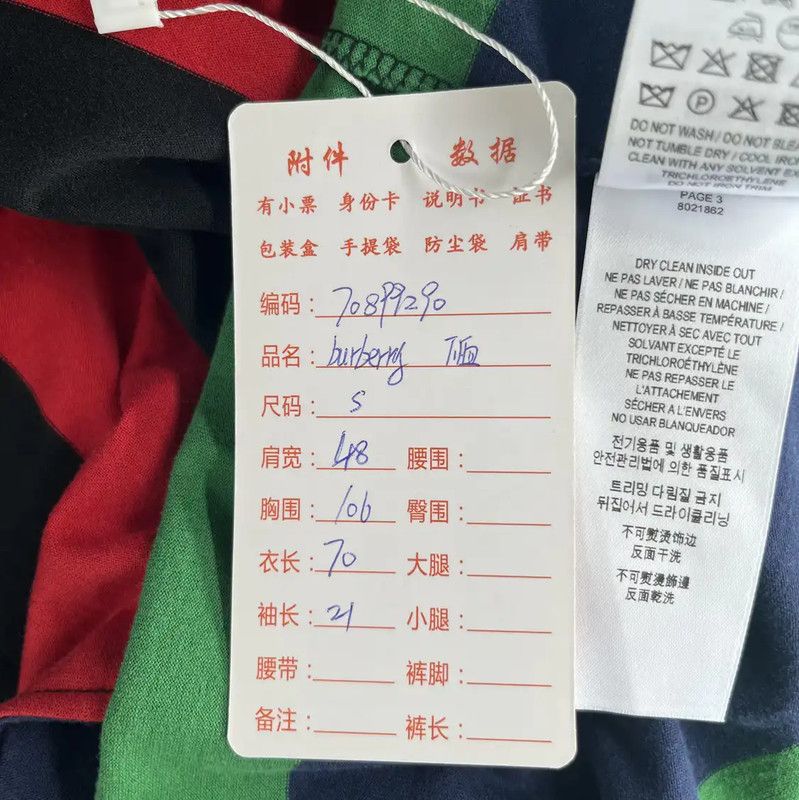 附件 数据
有小票 身份卡 说明书 证书
包装盒 手提袋 防尘袋 肩带
编码：70899290
品名：burberry T恤
尺码：S
肩宽：48 腰围：
胸围：106 臀围：
衣长：70 大腿：
袖长：21 小腿：
腰带： 裤脚：
备注： 裤长：
DO NOT WASH / DO NOT BLEA
NOT TUMBLE DRY / COOL IRON
CLEAN WITH ANY SOLVENT EX
TRICHLOROETHYLENE
DO NOT IRON TRIM
PAGE 3
8021862
DRY CLEAN INSIDE OUT
NE PAS LAVER / NE PAS BLANCHIR /
NE PAS SÉCHER EN MACHINE /
REPASSER À BASSE TEMPÉRATURE /
NETTOYER À SEC AVEC TOUT
SOLVANT EXCEPTÉ LE
TRICHLOROÉTHYLÈNE
NE PAS REPASSER LE
L'ATTACHEMENT
SÉCHER A L'ENVERS
NO USAR BLANQUEADOR
전기용품 및 생활용품
안전관리법에 의한 품질표시
트리밍 다림질 금지
뒤집어서 드라이클리닝
不可熨烫饰边
反面干洗
不可熨燙飾邊
反面乾洗